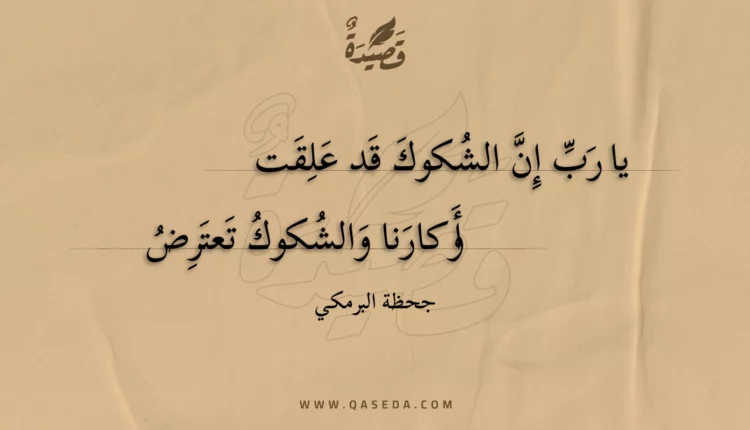 قَصِيدَةٌ
يا رَبِّ إِنَّ الشُكوكَ قَد عَلِقَت
أَوكارَنا وَالشُكوكُ تَعتَرِضُ
جحظة البرمكي
WWW.QASEDA.COM